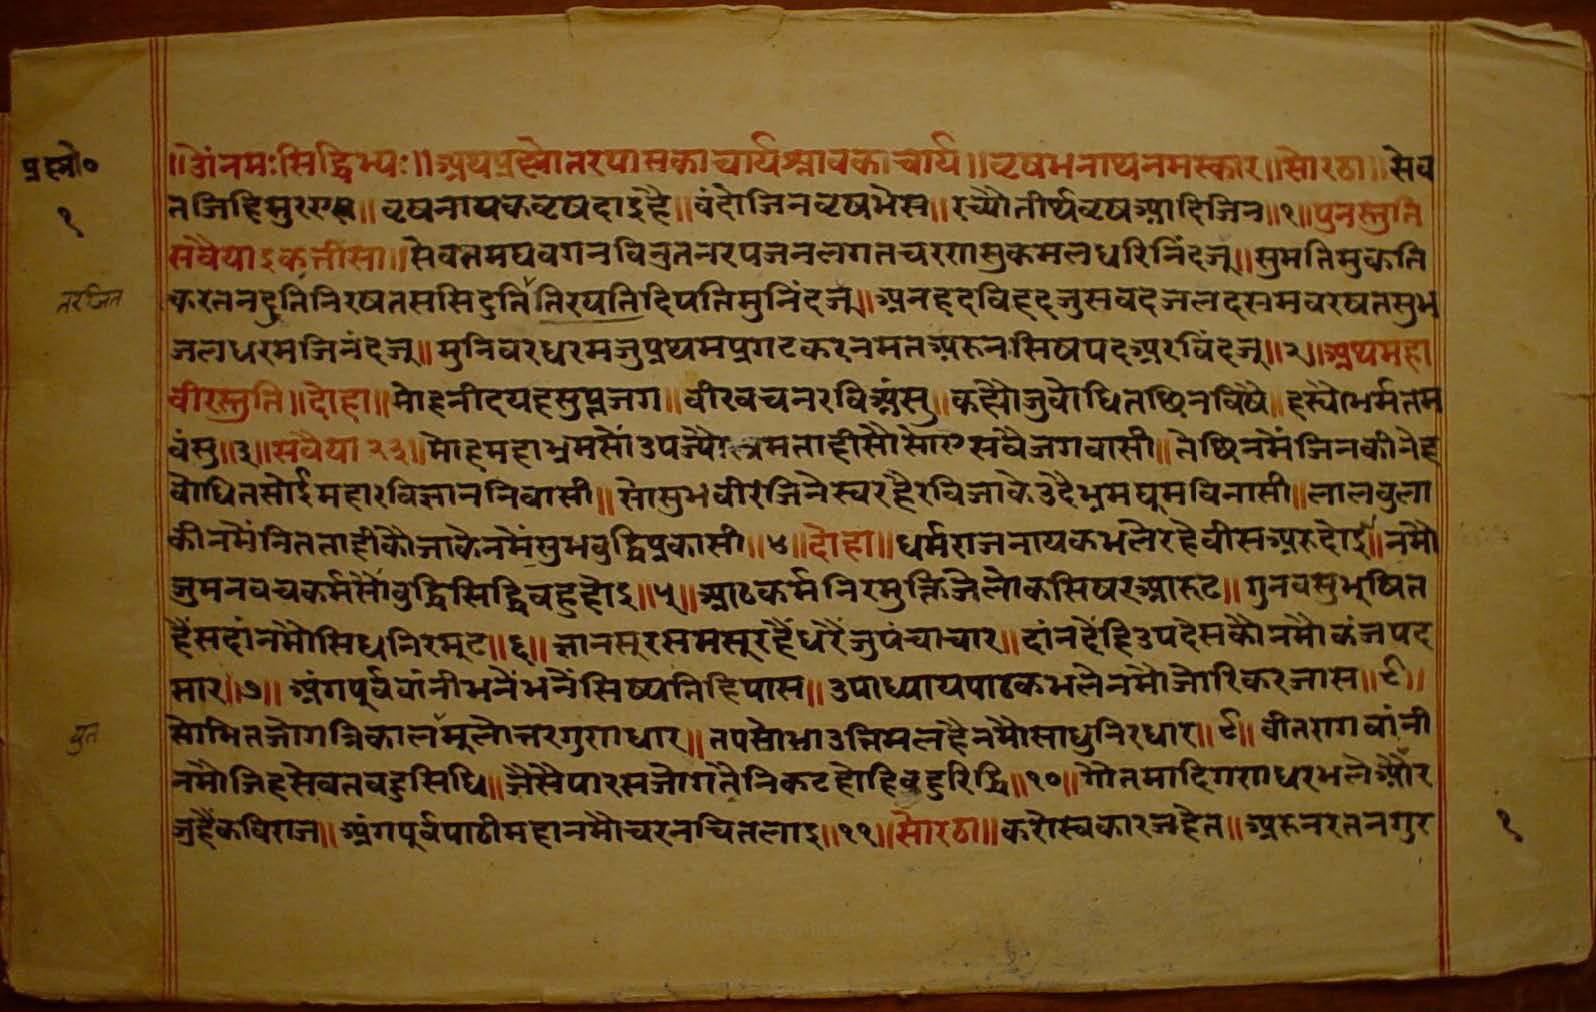 प्रस्नो०
१
॥ॐनमःसिद्धिभ्यः॥अथप्रस्नोतरपासकाचार्यश्रावकाचार्य॥वृषभनाथनमस्कार॥सोरठा॥सेव
तजिहिसुर॥वृषनायकवृषदाइहै॥वंदोजिनवृषभेस॥रच्यौतीर्थवृषआदिजिन॥१॥पुनस्तुति
सवैयाइकतीसा॥सेवतमघवगनविनुतनरपजनलगतचरणसुकमलधरिनिंदजू॥सुमतिसुकति
तरजित
करतनदुतिनिरषतससिदुतितिरषतिदिपतिमुनिंदजू॥अनहदविहदजुसवदजलदसमवरषतसुभ
जलधरमजिनंदजू॥मुनिवरधरमजुप्रथमप्रगटकरनमतअरुनसिषपदअरविंदजू॥२॥अथमहा
वीरस्तुति॥दोहा॥मोहनीदयहसुप्तजग॥वीरवचनरविअंसु॥कह्यौजुवोधितछिनविषै॥हस्यौभर्मतम
वंसु॥३॥सवैया२३॥मोहमहाभ्रमसोंउपज्यौतमताहीसौसोएसवैजगवासी॥तेछिनमेंजिनकीनेह
वोधितसोईमहारविज्ञाननिवासी॥सोसुभवीरजिनेस्वरहैरविजाकेउदैभ्रमघूमविनासी॥लालवुला
कीनमेंनितताहीकौजाकेनमेंसुभवुद्धिप्रकासी॥४॥दोहा॥धर्मराजनायकभलेरहैवीसअरुदोइ॥नमौ
जुमनवचकर्मसौंवुद्धिसिद्धिवहुहोइ॥५॥आठकर्मनिरमुक्तिजेलोकसिषरआरूट॥गुनवसुभूषित
हैंसदांनमौसिधनिरमूट॥६॥ज्ञानसुरसमसूरहैंधरैंजुपंचाचार॥दांनदेंहिउपदेसकौनमौकंजपद
सार॥७॥अंगपूर्ववांनीभनैंभनैंसिष्यनिहिपास॥उपाध्यायपाठकभलेनमौजोरिकरजास॥८॥
युत
सोभितजोगत्रिकालमूलोत्तरगुराधार॥तपसोभाउत्तिमलहैनमौसाधुनिरधार॥९॥वीतरागवांनी
नमौजिहसेवतवहुसिधि॥जैसैपारसजोगतैनिकटहोहिवहुरिद्धि॥१०॥गौतमादिगराधरभलेऔर
जुहैंकविराज॥अंगपूर्वपाठीमहानमौचरनचितलाइ॥११॥सोरठा॥करौस्वकारजहेत॥अरुनरतनगुर
१